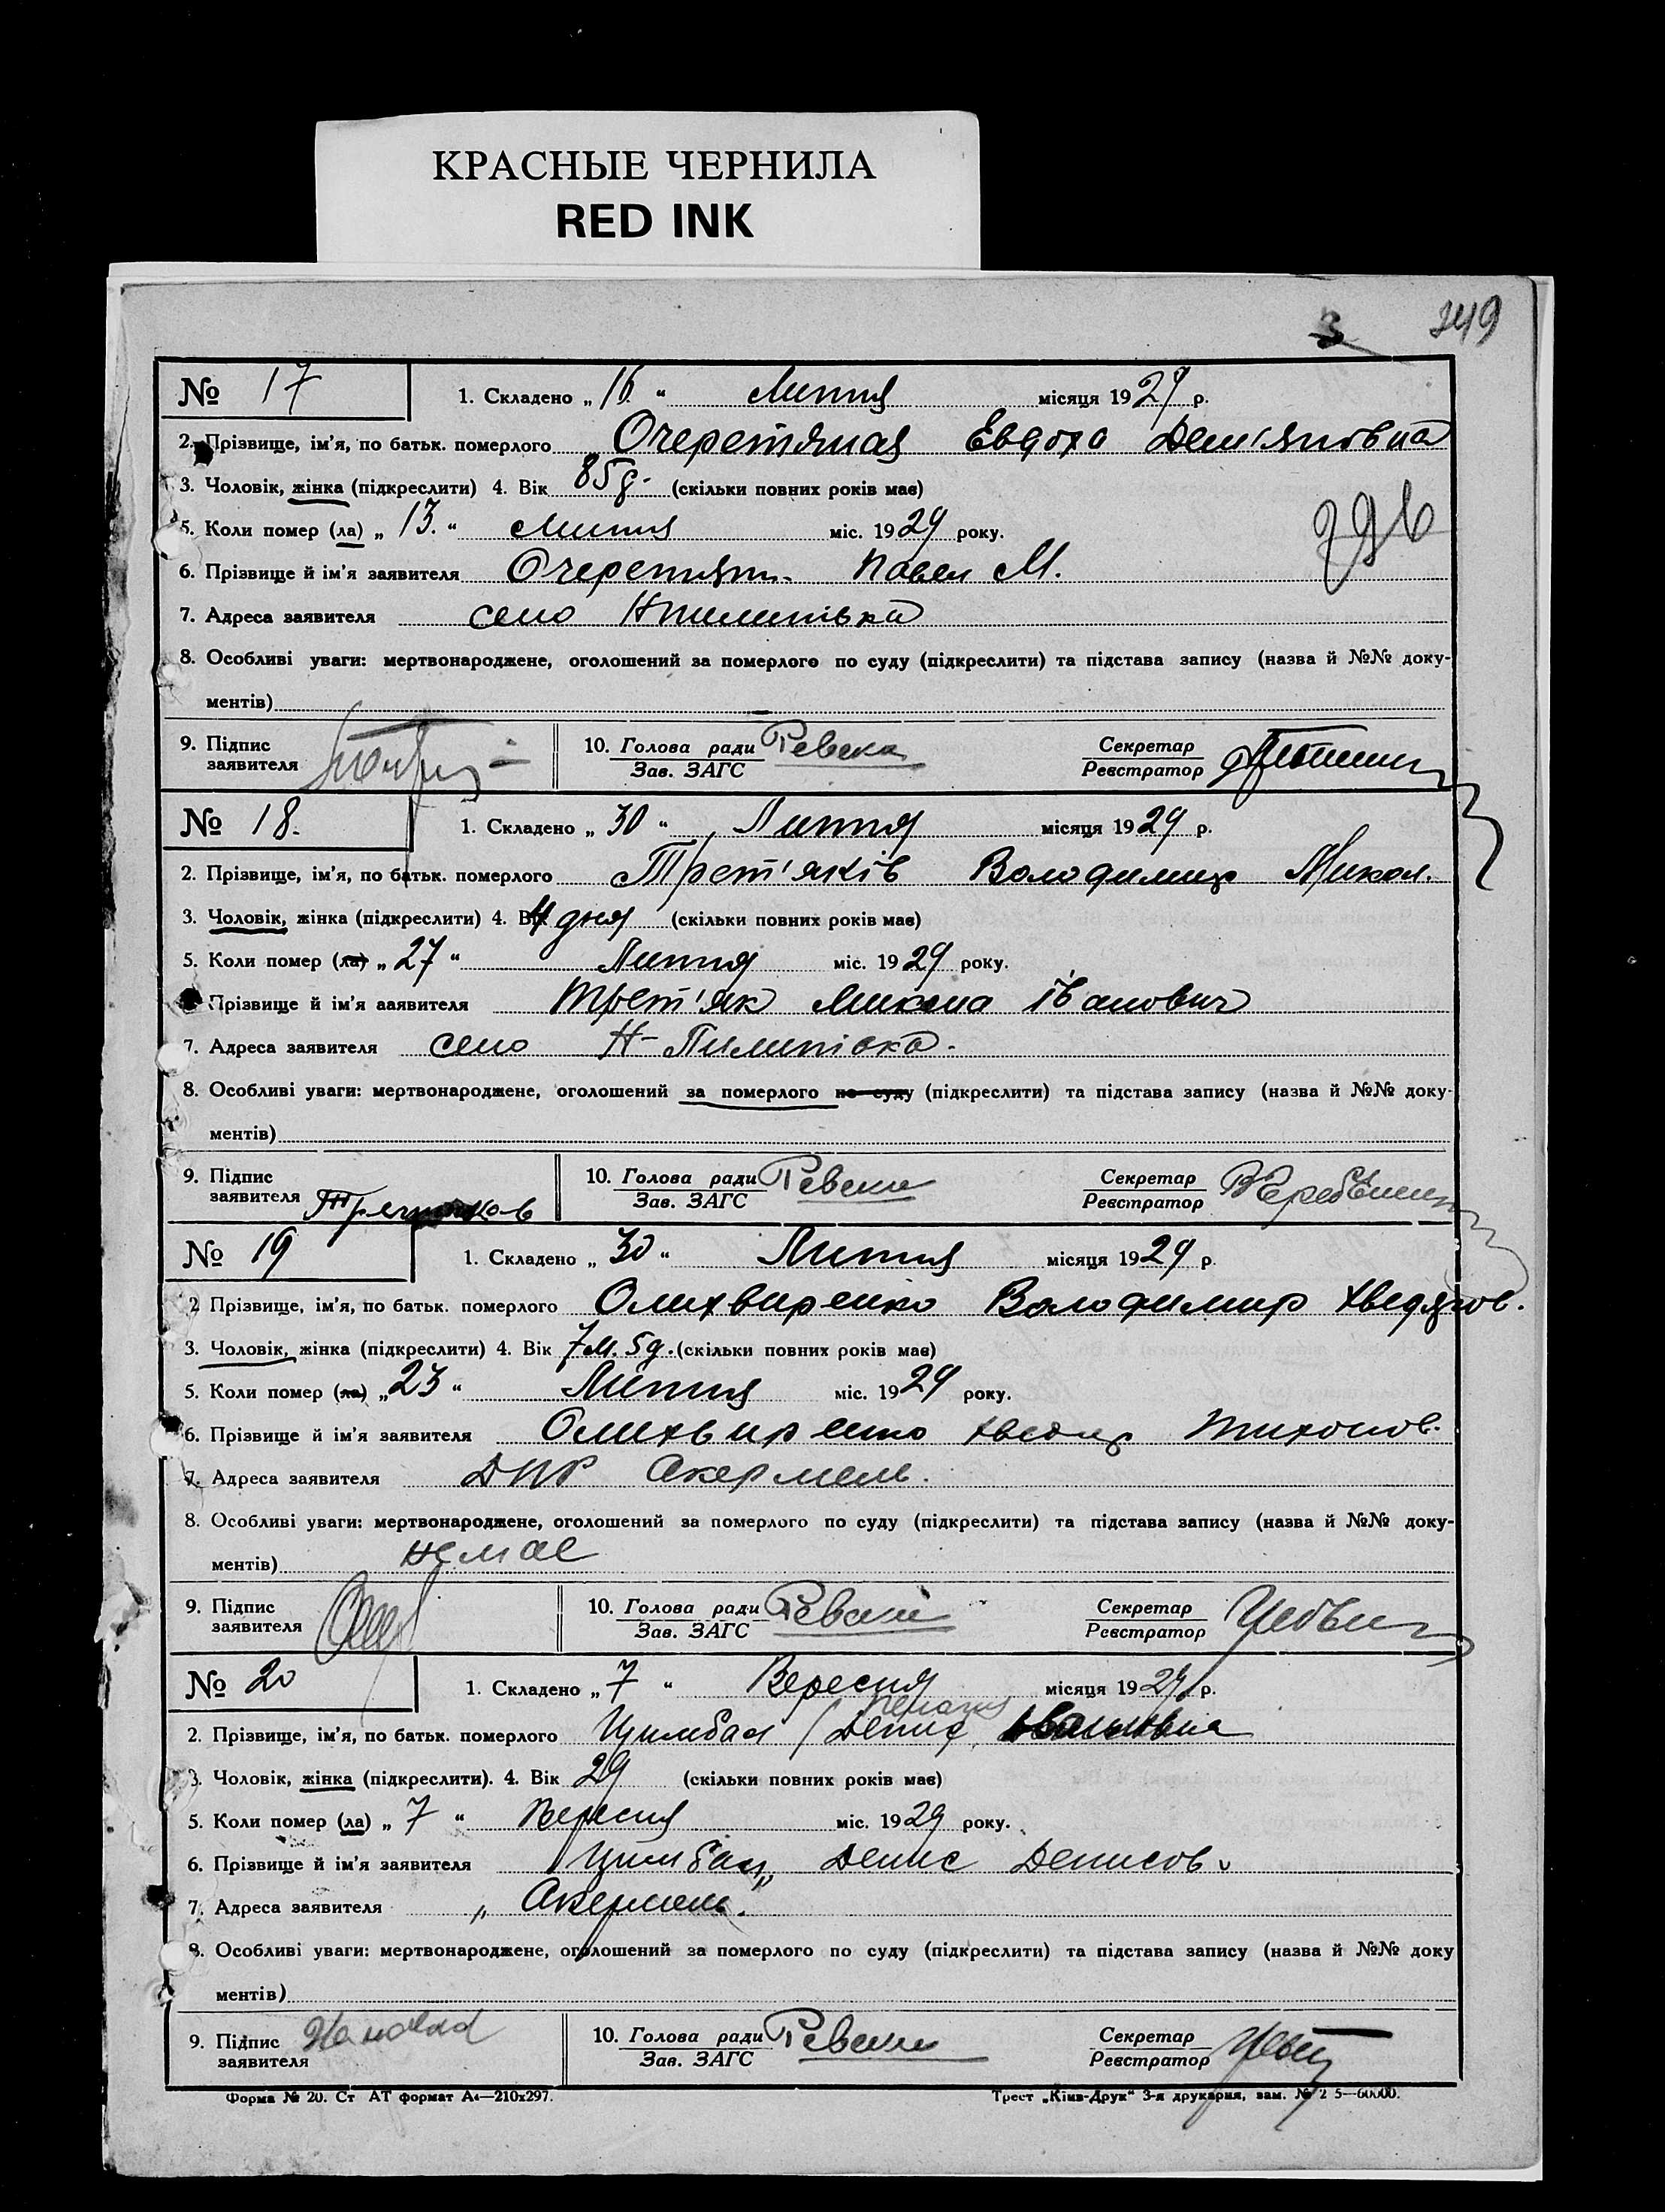 КРАСНЫЕ ЧЕРНИЛА
RED INK
3 249
№ 17 1. Складено „ 16 “ Липня місяця 1929 р.
2. Прізвище, ім’я, по батьк. померлого Очеретяная Евдоха Дем'яновна
3. Чоловік, жінка (підкреслити) 4. Вік 85 (скільки повних років має)
5. Коли помер (ла) „ 13. “ Липня міс. 1929 року.
6. Прізвище й ім’я заявителя Павел М.
7. Адреса заявителя село
8. Особливі уваги: мертвонароджене, оголошений за померлого по суду (підкреслити) та підстава запису (назва й №№ доку-
ментів)
9. Підпис заявителя 10. Голова ради Зав. ЗАГС Секретар Реєстратор
№ 18. 1. Складено „ 30 “ Липня місяця 1929 р.
2. Прізвище, ім’я, по батьк. померлого Трет'яків Володимир Микол.
3. Чоловік, жінка (підкреслити) 4. Вік 4 дня (скільки повних років має)
5. Коли помер (ла) „ 27 “ Липня міс. 1929 року.
Прізвище й ім’я ааявителя Трет'як Микола Іванович
7. Адреса заявителя село Н-Пилипівка.
8. Особливі уваги: мертвонароджене, оголошений за померлого по суду (підкреслити) та підстава запису (назва й №№ доку-
ментів)
9. Підпис заявителя 10. Голова ради Зав. ЗАГС Секретар Реєстратор
№ 19 1. Складено „ 30 “ Липня місяця 1929 р.
2 Прізвище, ім’я, по батьк. померлого Олихвиренко Володимир Хведоров.
3. Чоловік, жінка (підкреслити) 4. Вік 7 м. 5 д. (скільки повних років має)
5. Коли помер (ла) „ 23 “ Липня міс. 1929 року.
6. Прізвище й ім’я заявителя Олихвиренко Хведир Тихонов.
7. Адреса заявителя Акермень.
8. Особливі уваги: мертвонароджене, оголошений за померлого по суду (підкреслити) та підстава запису (назва й №№ доку-
ментів) немає
9. Підпис заявителя 10. Голова ради Зав. ЗАГС Секретар Реєстратор
№ 20 1. Складено „ 7 “ Вересня місяця 1929 р.
2. Прізвище, ім’я, по батьк. померлого Цимбал
3. Чоловік, жінка (підкреслити). 4. Вік 29 (скільки повних років має)
5. Коли помер (ла) „ 7 “ Вересня міс. 1929 року.
6. Прізвище й ім’я заявителя Цимбал Денис Денисов
7. Адреса заявителя „ Акермень.
8. Особливі уваги: мертвонароджене, оголошений за померлого по суду (підкреслити) та підстава запису (назва й №№ доку
ментів)
9. Підпис заявителя 10. Голова ради Зав. ЗАГС Секретар Реєстратор
Форма № 20. Ст АТ формат А4—210х297. Трест „Київ-Друк“ 3-я друкарня, зам. №